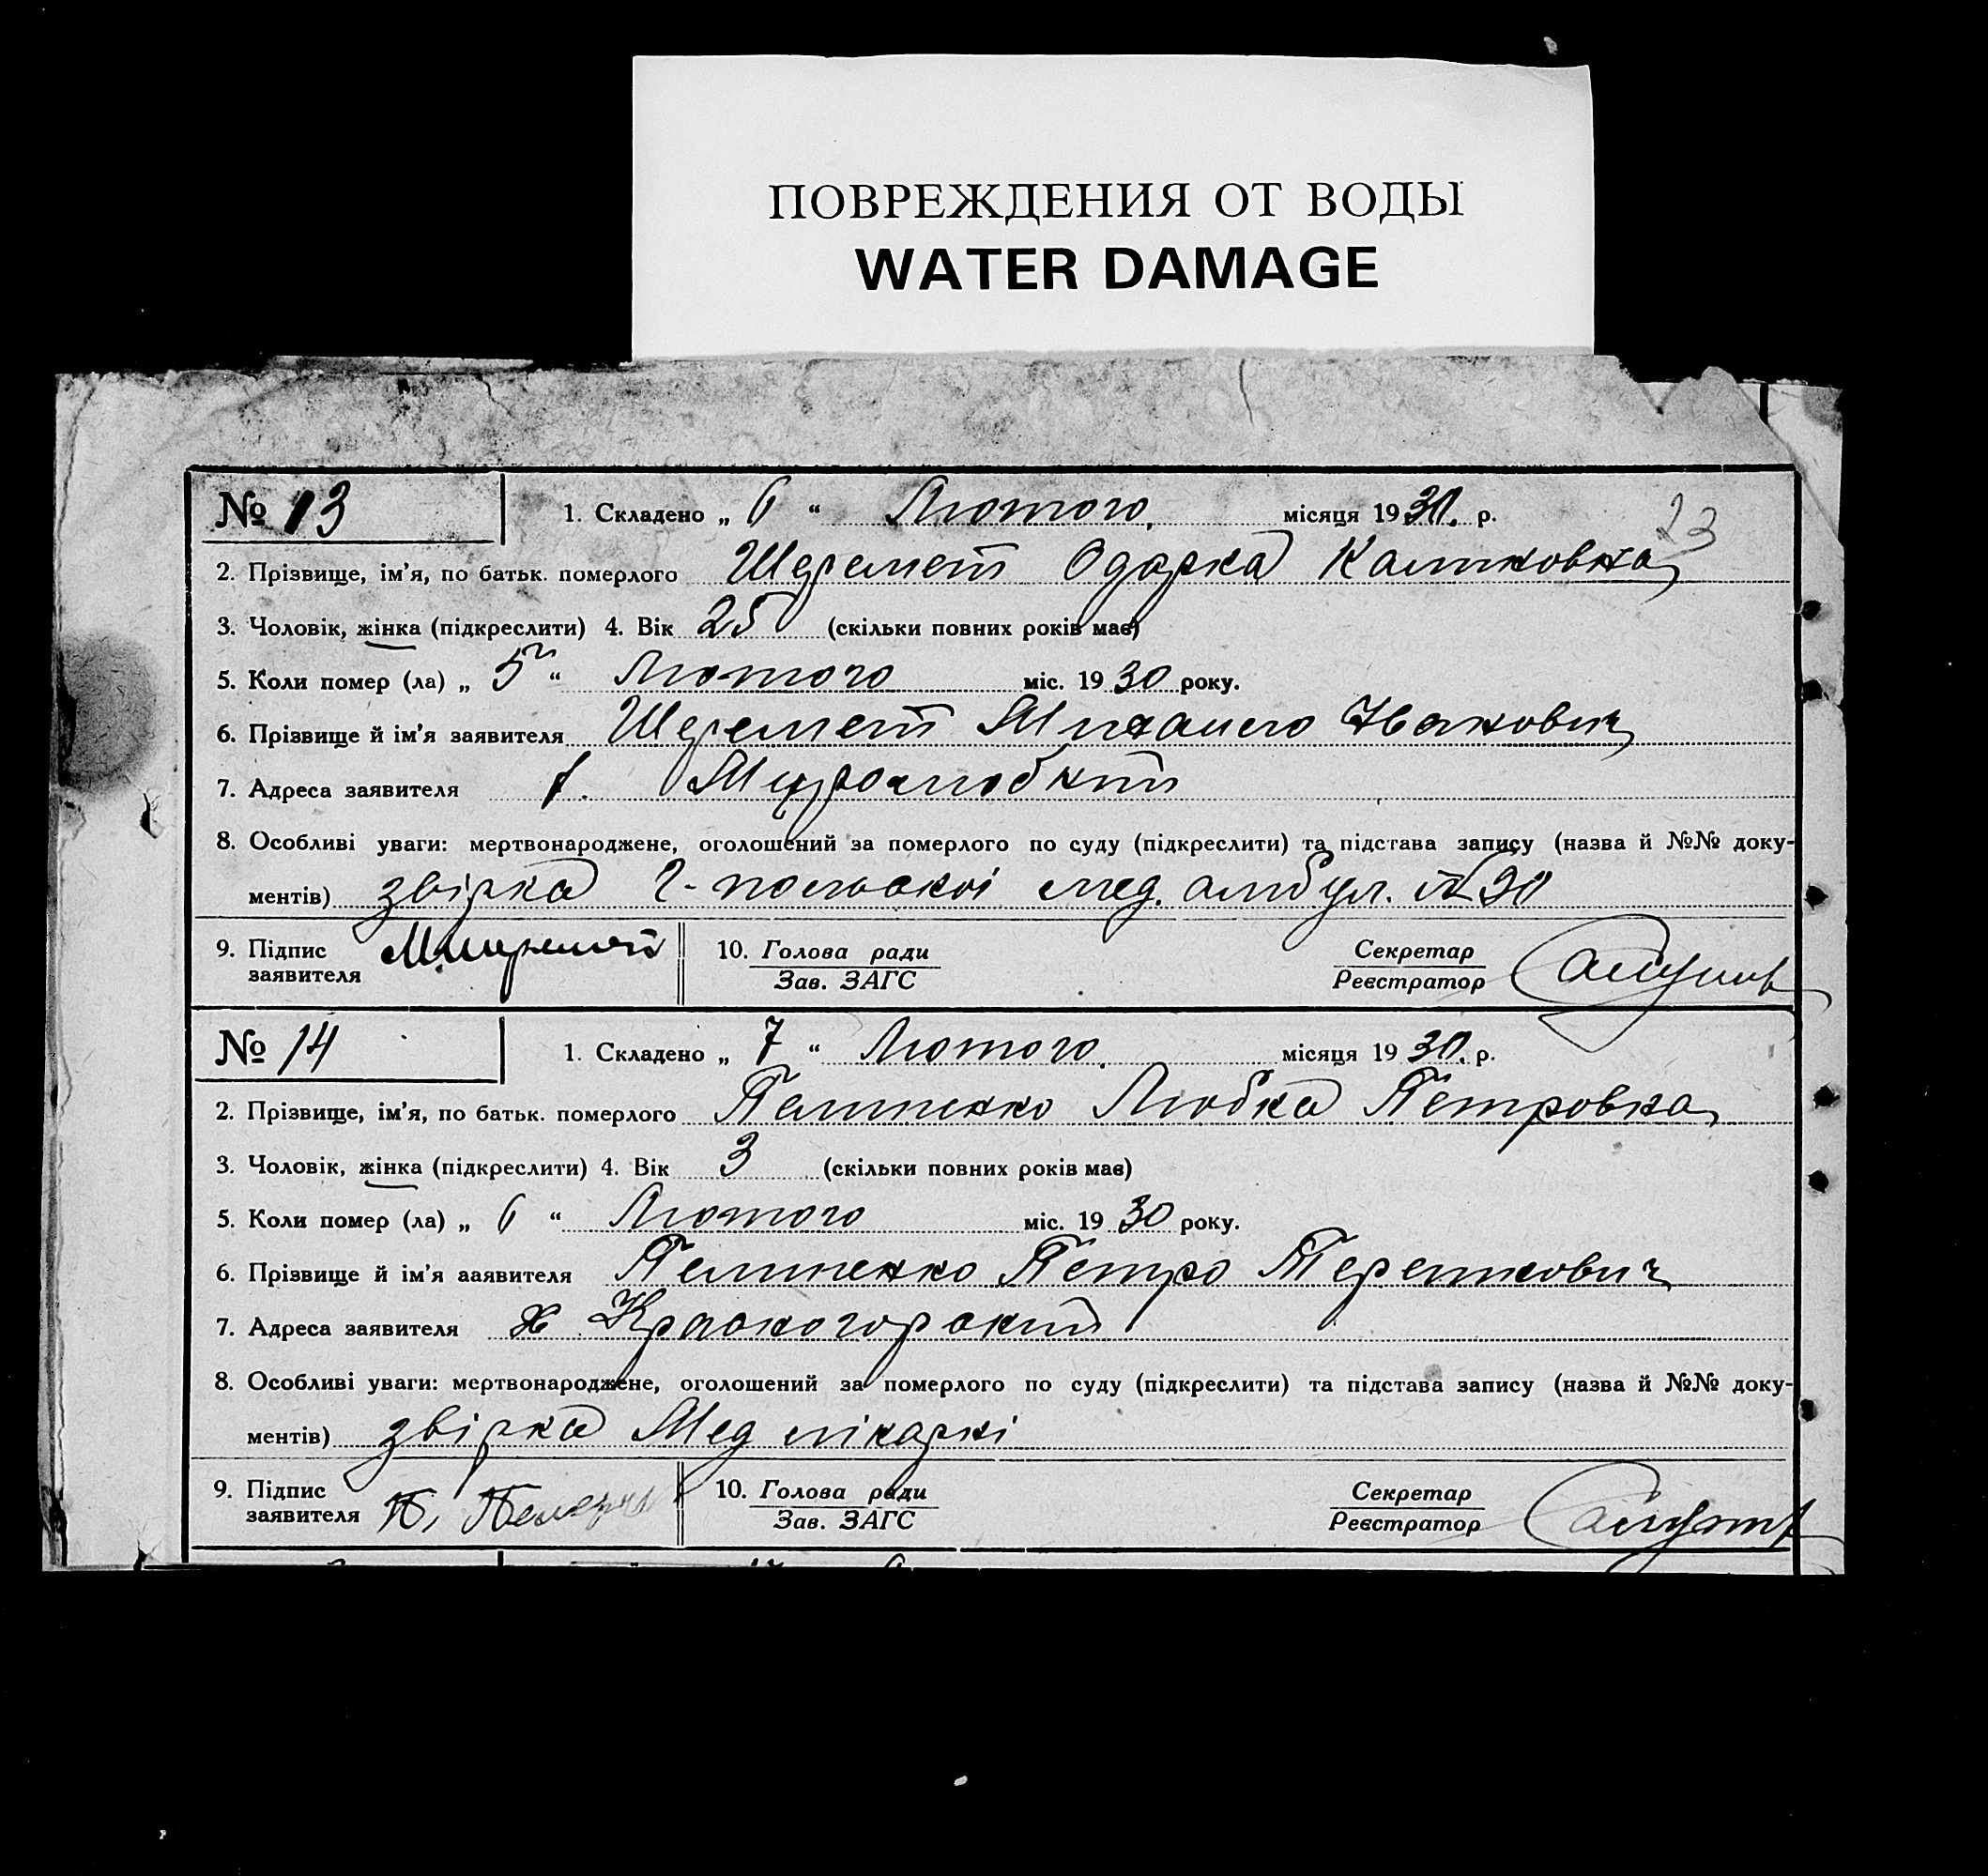 ПОВРЕЖДЕНИЯ ОТ ВОДЫ
WATER DAMAGE
№ 13
1. Складено „ 6 “ Лютого місяця 1930. р.
23
2. Прізвище, ім'я, по батьк. померлого Шеремет Одарка
3. Чоловік, жінка (підкреслити) 4. Вік 25 (скільки повних років має)
5. Коли помер (ла) „ 5 “ Лютого міс. 1930 року.
6. Прізвище й ім'я заявителя Шеремет Михайло Іванович
7. Адреса заявителя
8. Особливі уваги: мертвонароджене, оголошений за померлого по суду (підкреслити) та підстава запису (назва й №№ доку-
ментів) звірка мед. амбул. №
9. Підпис заявителя
10. Голова ради
Зав. ЗАГС
Секретар
Реєстратор
№ 14
1. Складено „ 7 “ Лютого. місяця 1930. р.
2. Прізвище, ім'я, по батьк. померлого Любка Петровна
3. Чоловік, жінка (підкреслити) 4. Вік 3 (скільки повних років має)
5. Коли помер (ла) „ 6 “ Лютого міс. 1930 року.
6. Прізвище й ім'я заявителя Петро
7. Адреса заявителя х Красногорский
8. Особливі уваги: мертвонароджене, оголошений за померлого по суду (підкреслити) та підстава запису (назва й №№ доку-
ментів) звірка Мед лікаркі
9. Підпис заявителя П.
10. Голова ради
Зав. ЗАГС
Секретар
Реєстратор